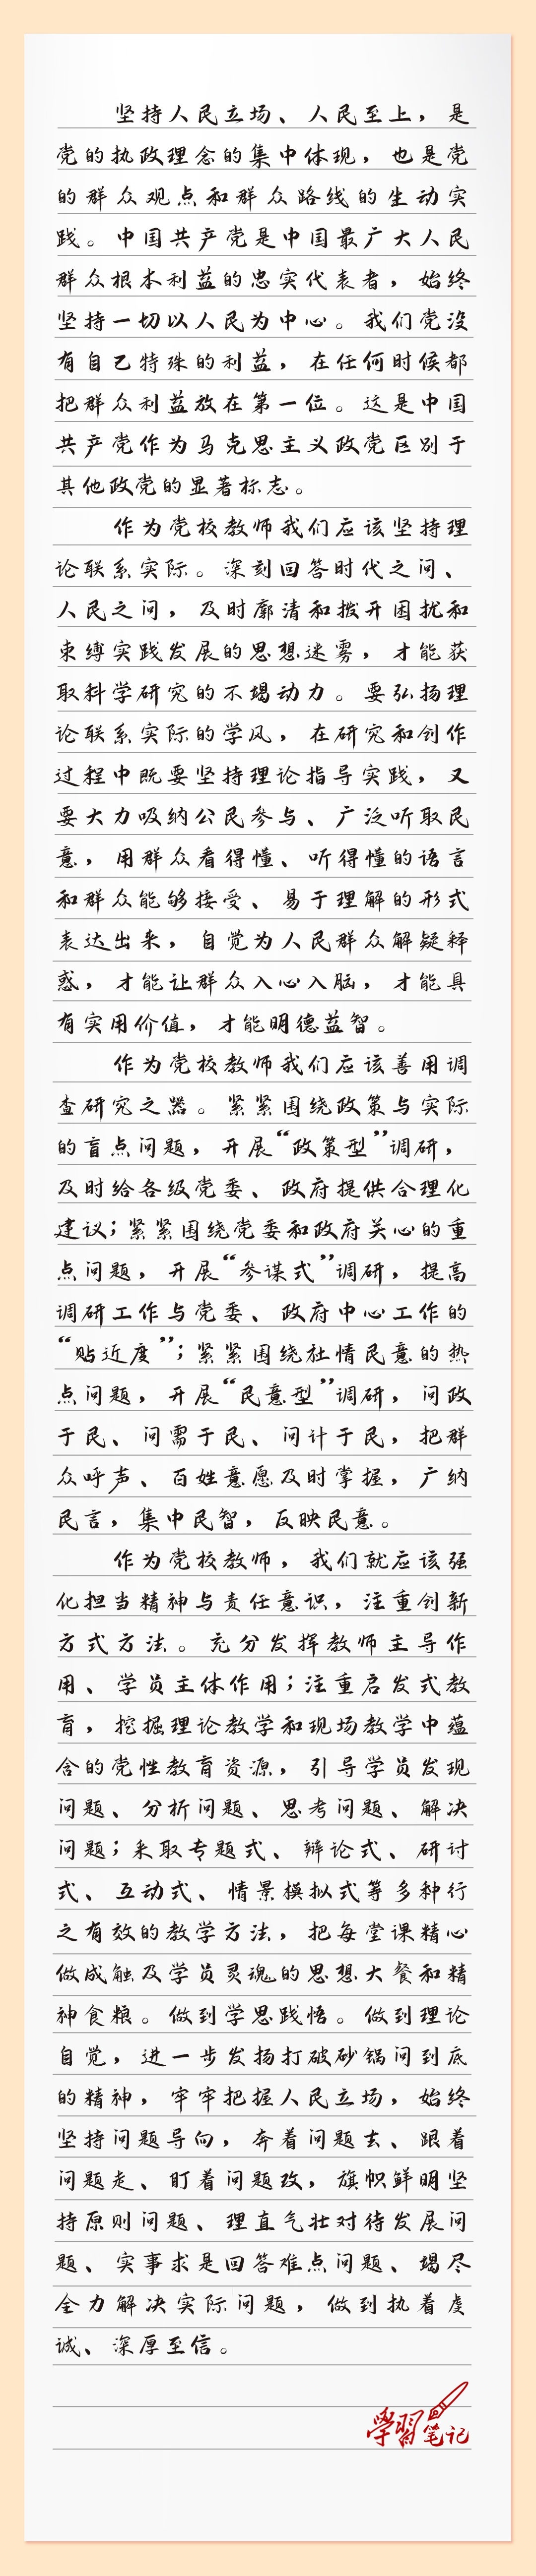 坚持人民立场、人民至上，是
党的执政理念的集中体现，也是党
的群众观点和群众路线的生动实
践。中国共产党是中国最广大人民
群众根本利益的忠实代表者，始终
坚持一切以人民为中心。我们党没
有自己特殊的利益，在任何时候都
把群众利益放在第一位。这是中国
共产党作为马克思主义政党区别于
其他政党的显著标志。
作为党校教师我们应该坚持理
论联系实际。深刻回答时代之问、
人民之问，及时廓清和拨开困扰和
束缚实践发展的思想迷雾，才能获
取科学研究的不竭动力。要弘扬理
论联系实际的学风，在研究和创作
过程中既要坚持理论指导实践，又
要大力吸纳公民参与、广泛听取民
意，用群众看得懂、听得懂的语言
和群众能够接受、易于理解的形式
表达出来，自觉为人民群众解疑释
惑，才能让群众入心入脑，才能具
有实用价值，才能明德益智。
作为党校教师我们应该善用调
查研究之器。紧紧围绕政策与实际
的盲点问题，开展“政策型”调研，
及时给各级党委、政府提供合理化
建议；紧紧围绕党委和政府关心的重
点问题，开展“参谋式”调研，提高
调研工作与党委、政府中心工作的
“贴近度”；紧紧围绕社情民意的热
点问题，开展“民意型”调研，问政
于民、问需于民、问计于民，把群
众呼声、百姓意愿及时掌握，广纳
民言，集中民智，反映民意。
作为党校教师，我们就应该强
化担当精神与责任意识，注重创新
方式方法。充分发挥教师主导作
用、学员主体作用；注重启发式教
育，挖掘理论教学和现场教学中蕴
含的党性教育资源，引导学员发现
问题、分析问题、思考问题、解决
问题；采取专题式、辩论式、研讨
式、互动式、情景模拟式等多种行
之有效的教学方法，把每堂课精心
做成触及学员灵魂的思想大餐和精
神食粮。做到学思践悟。做到理论
自觉，进一步发扬打破砂锅问到底
的精神，牢牢把握人民立场，始终
坚持问题导向，奔着问题去、跟着
问题走、盯着问题改，旗帜鲜明坚
持原则问题、理直气壮对待发展问
题、实事求是回答难点问题、竭尽
全力解决实际问题，做到执着虔
诚、深厚至信。
學習笔记